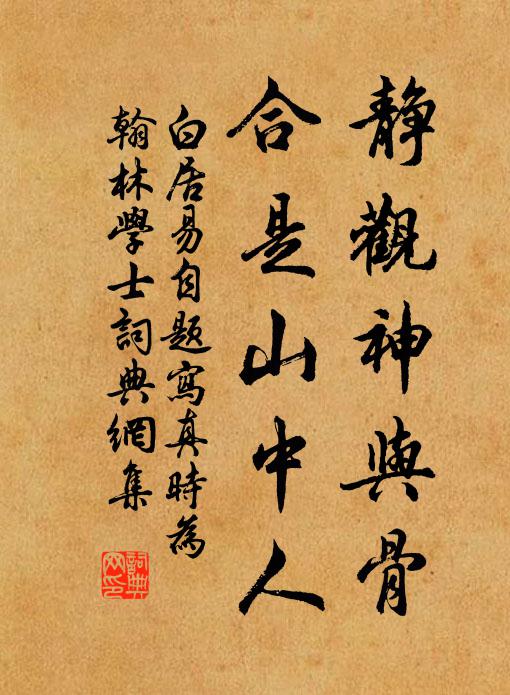 靜觀神與骨
合是山中人
白居易自題寫真時為
翰林學士詞典網集
詞典網印